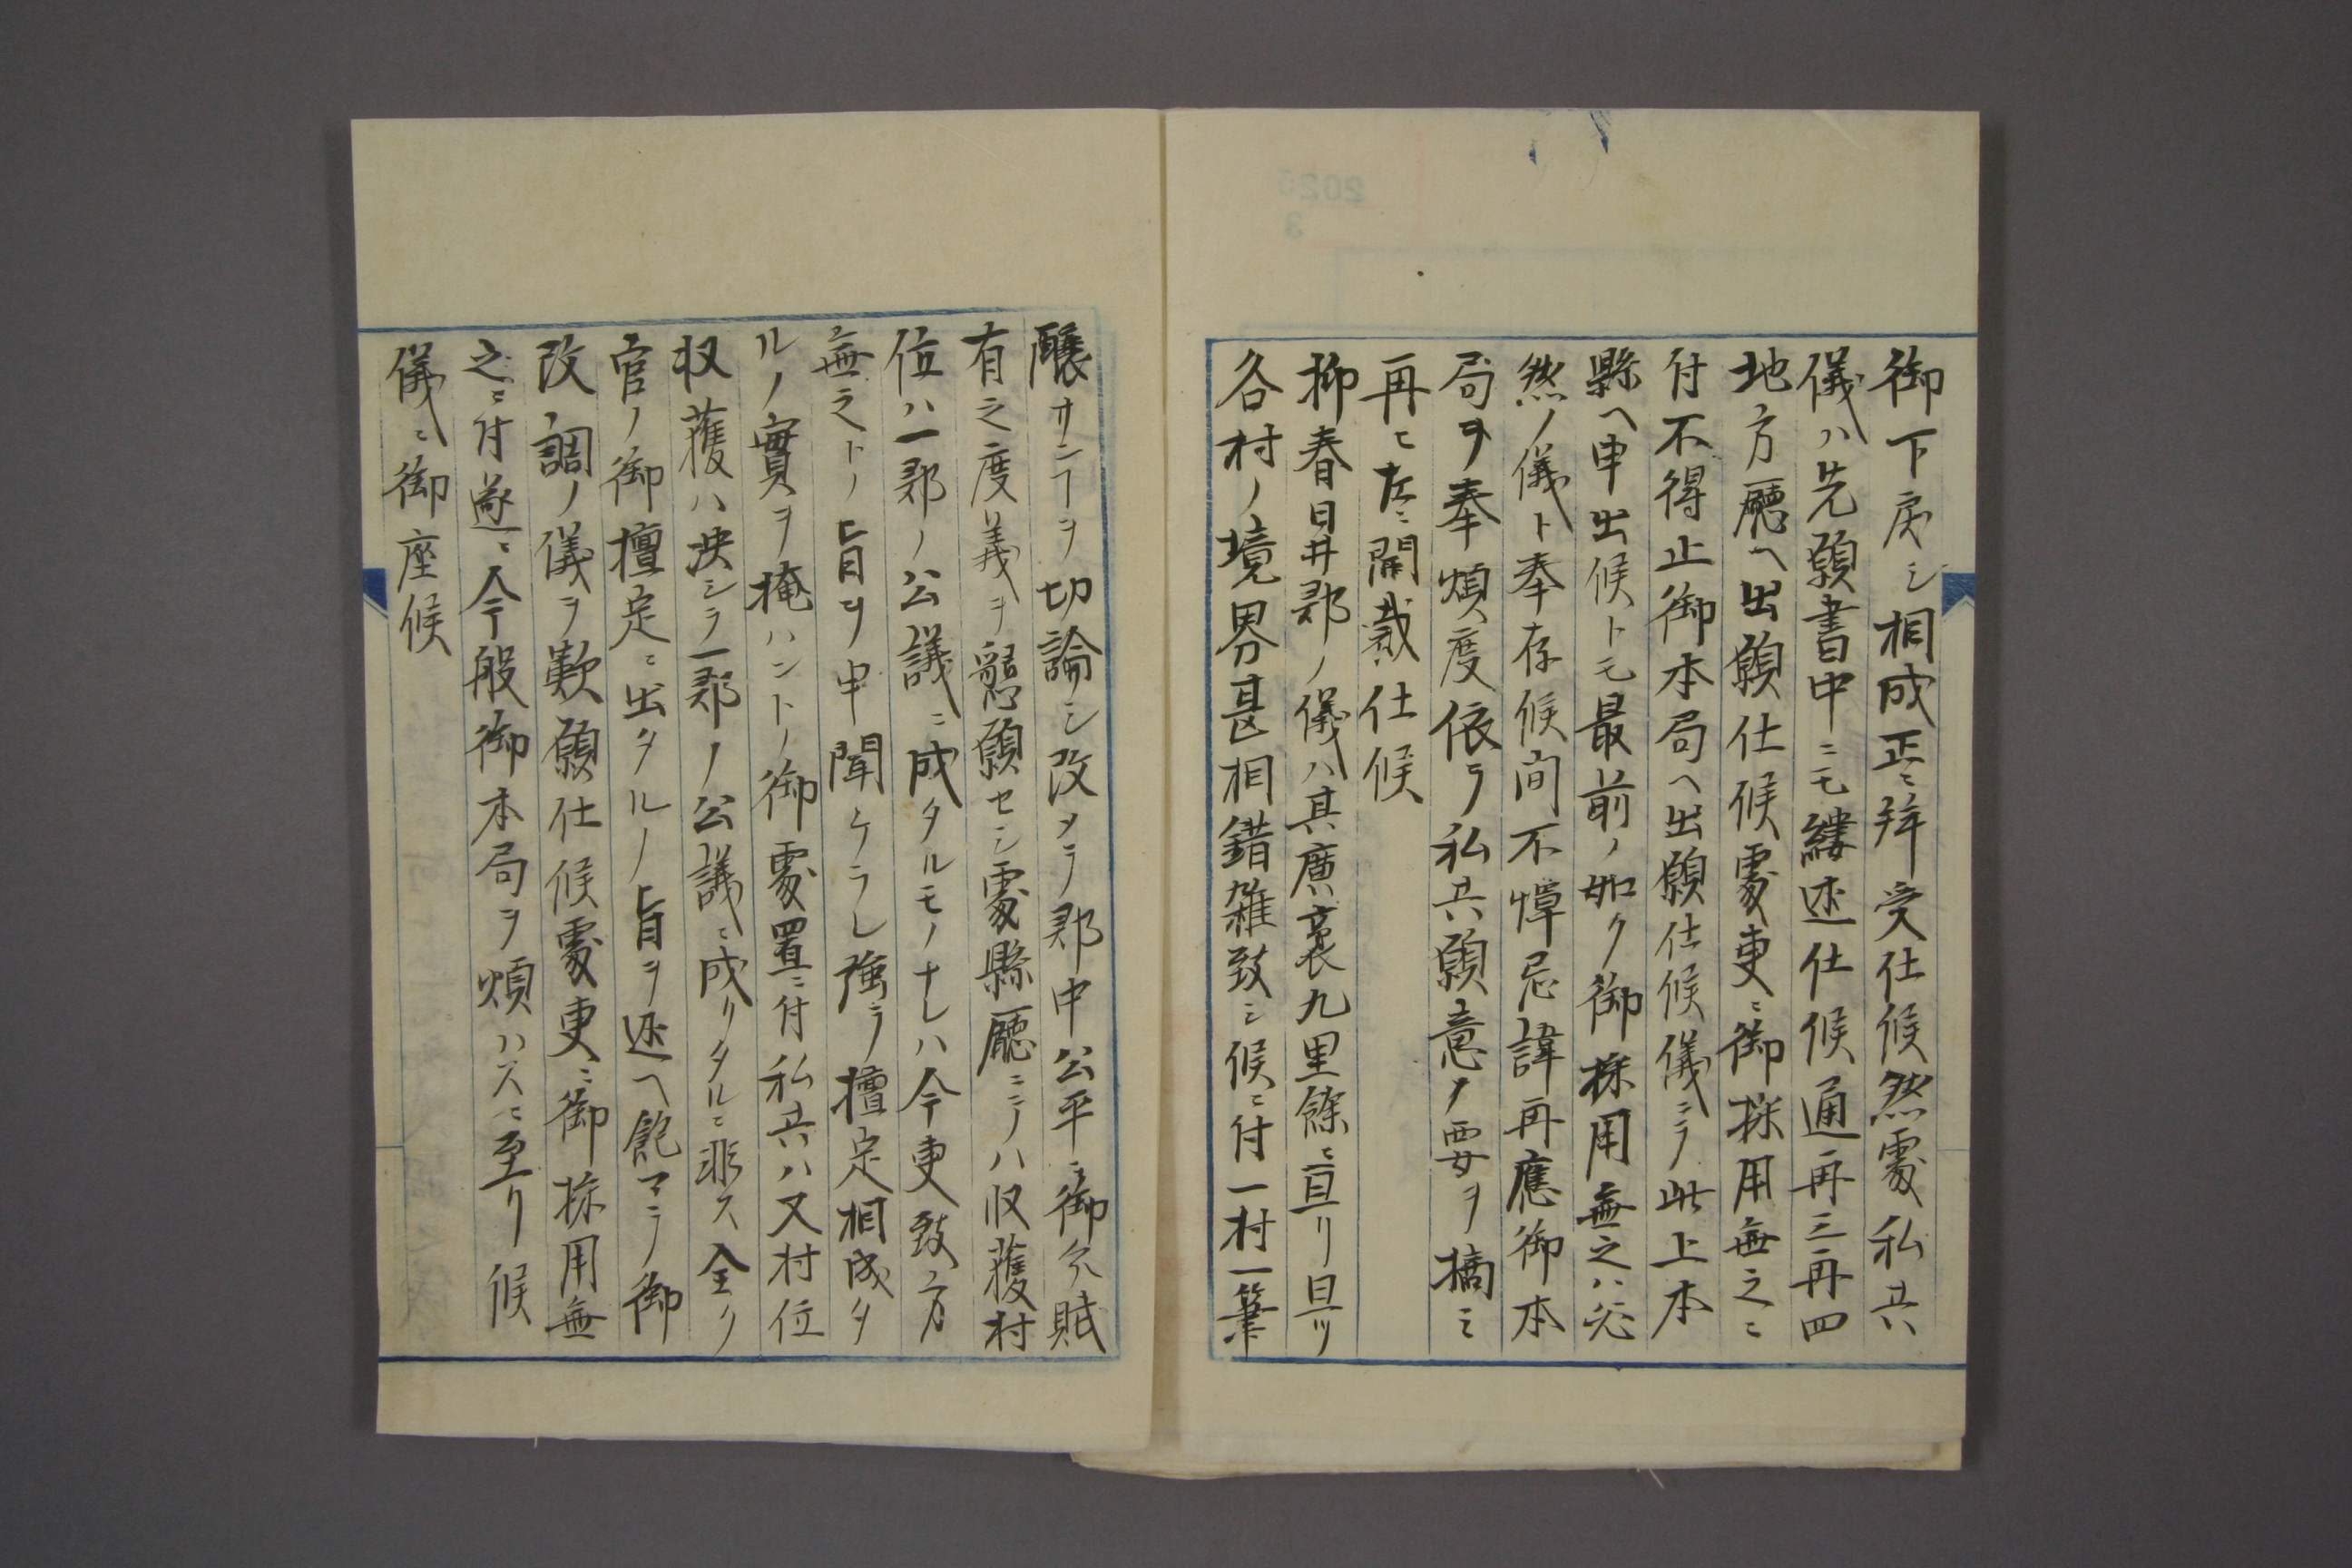 御下戻シ相成正ニ拝受仕候然處私共
儀ハ先願書中ニモ縷述仕候通再三再四
地方廳ヘ出願仕候處更ニ御採用無之ニ
付不得止御本局ヘ出願仕候儀ニテ此上本
縣ヘ申出候トモ最前ノ如ク御採用無之ハ必
然ノ儀ト奉存候間不憚忌諱再應御本
局ヲ奉煩度依テ私共願意ノ要ヲ摘ミ
再ヒ左ニ開裁仕候
抑春日井郡ノ儀ハ其廣袤九里餘ニ亘リ旦ツ
各村ノ境界甚相錯雑致シ候ニ付一村一筆
釀サンヿヲ切論シ改メテ郡中公平ニ御分賦
有之度義ヲ懇願セシ處縣廳ニテハ収獲村
位ハ一郡ノ公議ニ成タルモノナレハ今更致方
無之トノ旨ヲ申聞ケラレ強テ擅定相成タ
ルノ實ヲ掩ハントノ御處置ニ付私共ハ又村位
収獲ハ決シテ一郡ノ公議ニ成リタルニ非ス全ク
官ノ御擅定ニ出タルノ旨ヲ述ヘ飽マテ御
改調ノ儀ヲ歎願仕候處更ニ御採用無
之ニ付遂ニ今般御本局ヲ煩ハスニ至リ候
儀ニ御座候